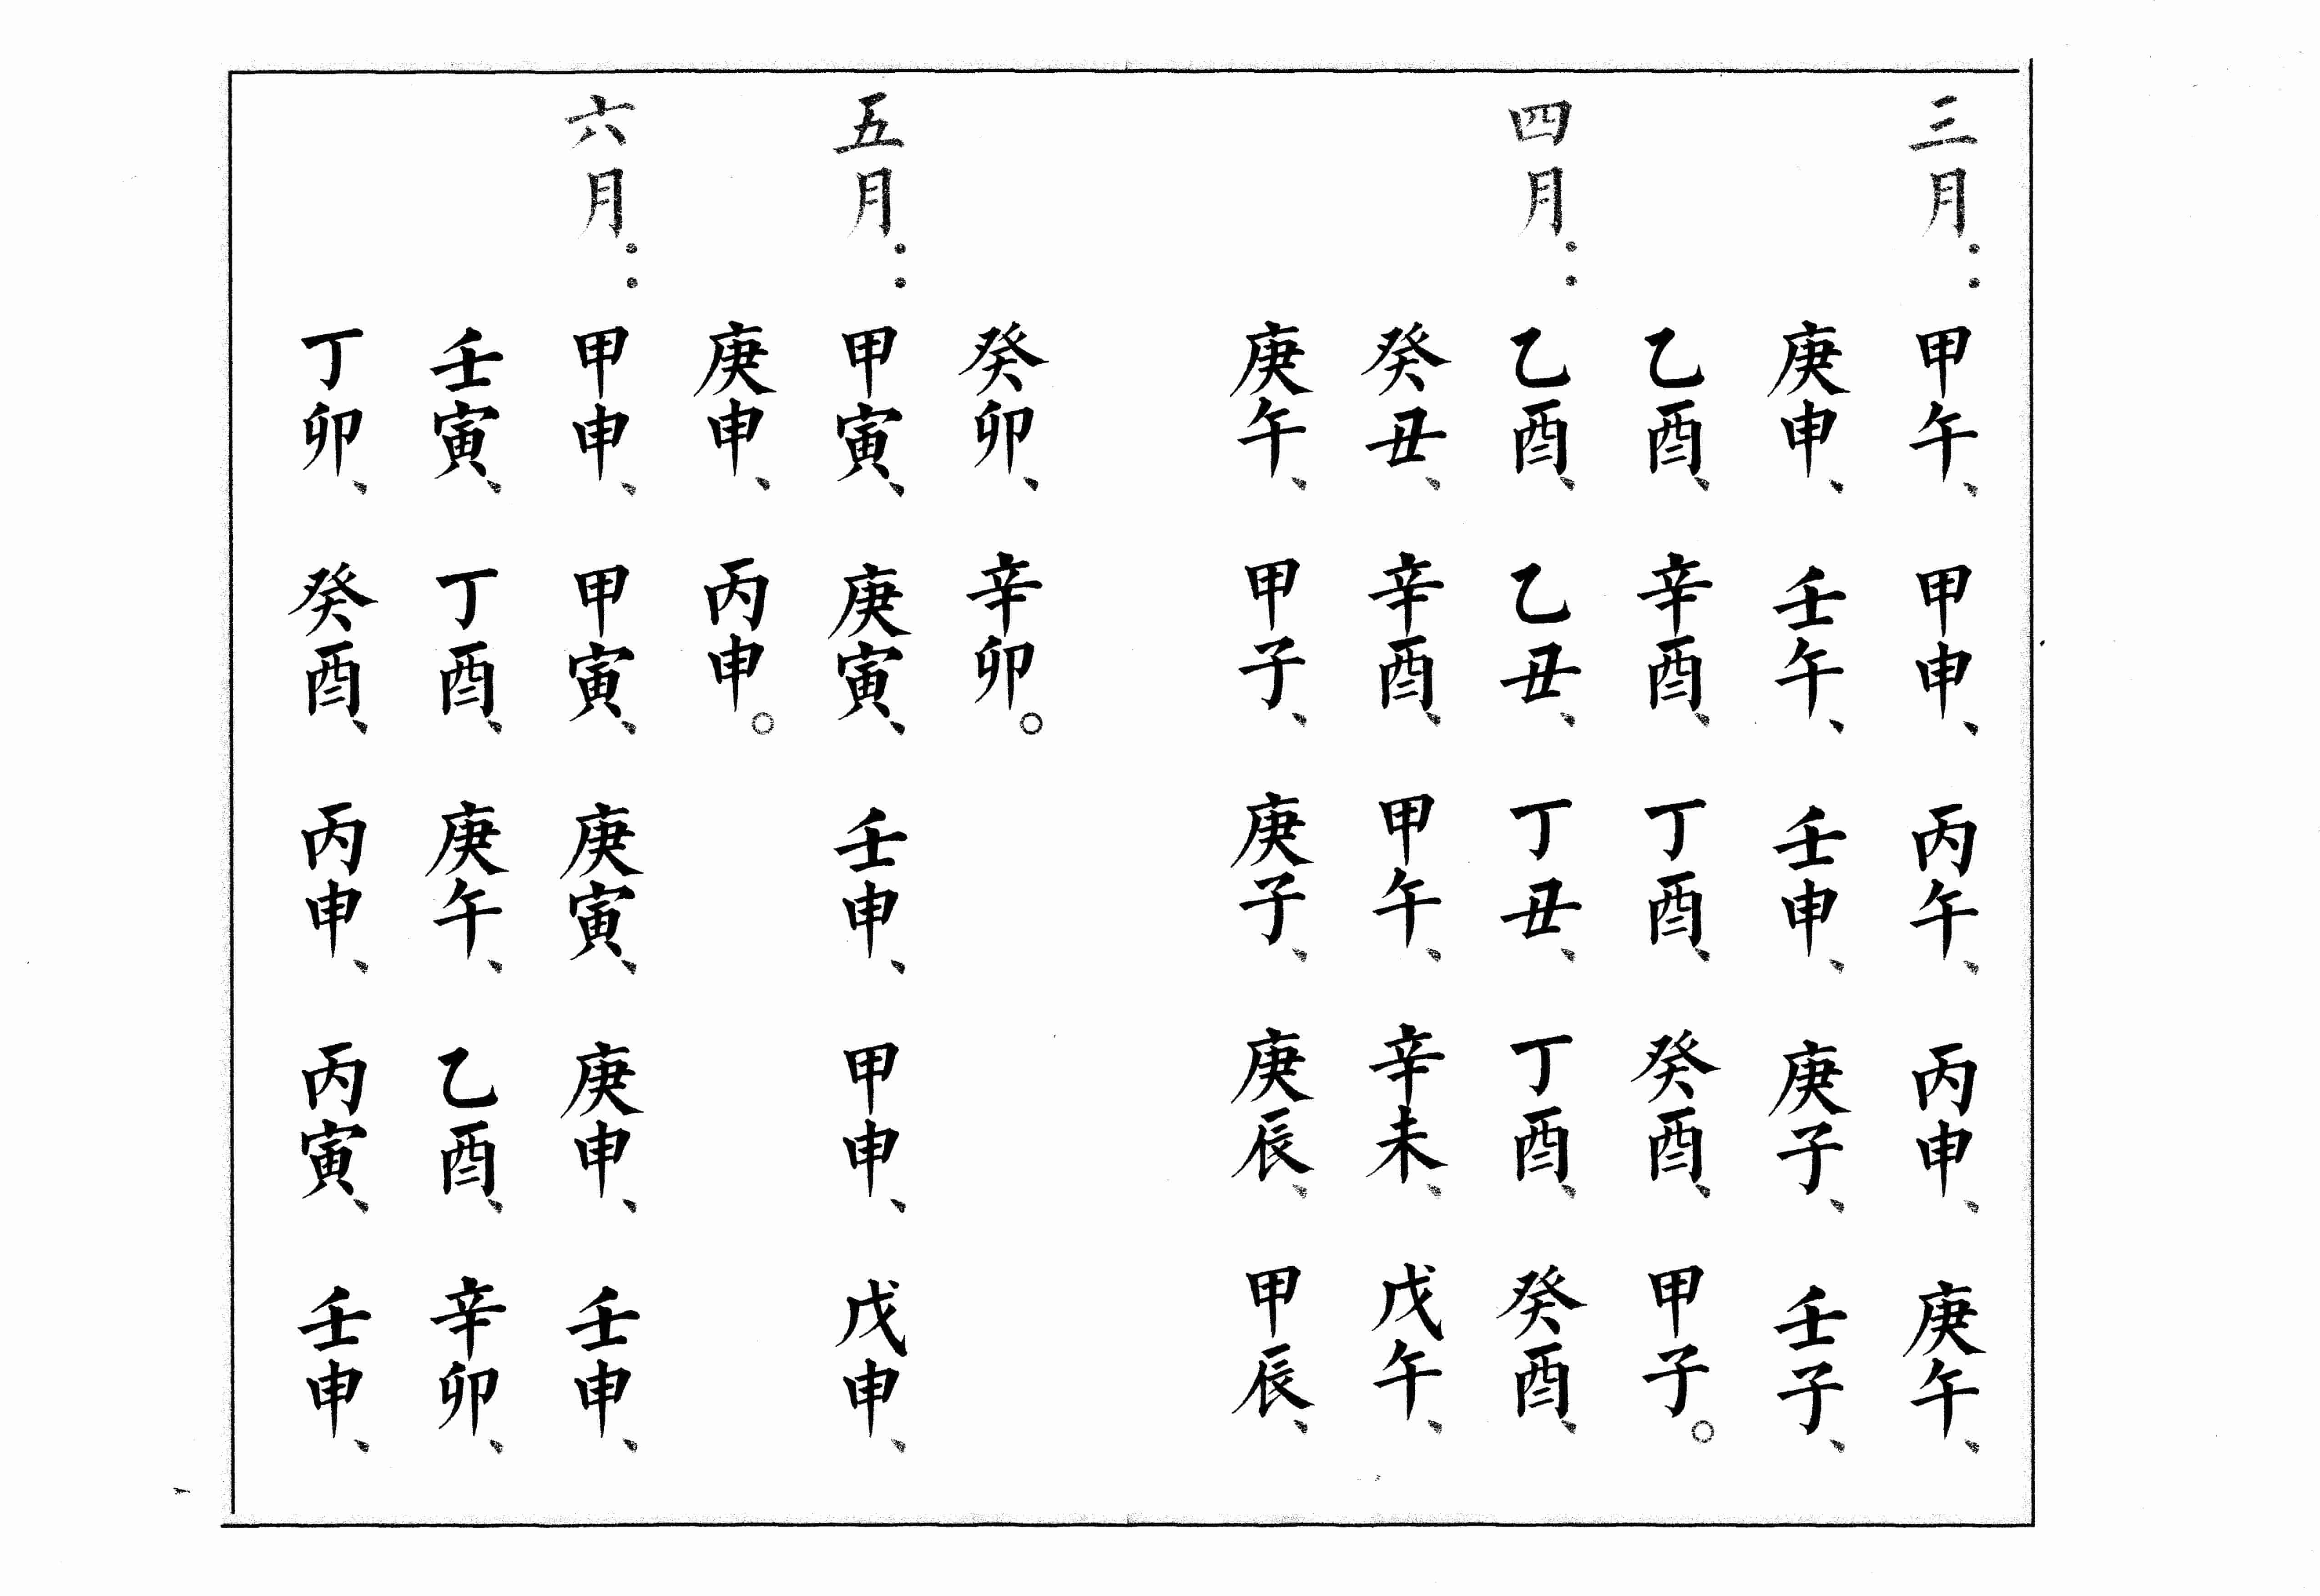 三月：甲午、甲申、丙午、丙申、庚午、
庚申、壬午、壬申、庚子、壬子、
乙酉、辛酉、丁酉、癸酉、甲子。
四月：乙酉、乙丑、丁丑、丁酉、癸酉、
癸丑、辛酉、甲午、辛未、戊午、
庚午、甲子、庚子、庚辰、甲辰、
癸卯、辛卯。
五月：甲寅、庚寅、壬申、甲申、戊申、
庚申、丙申。
六月：甲申、甲寅、庚寅、庚申、壬申、
壬寅、丁酉、庚午、乙酉、辛卯、
丁卯、癸酉、丙申、丙寅、壬申、